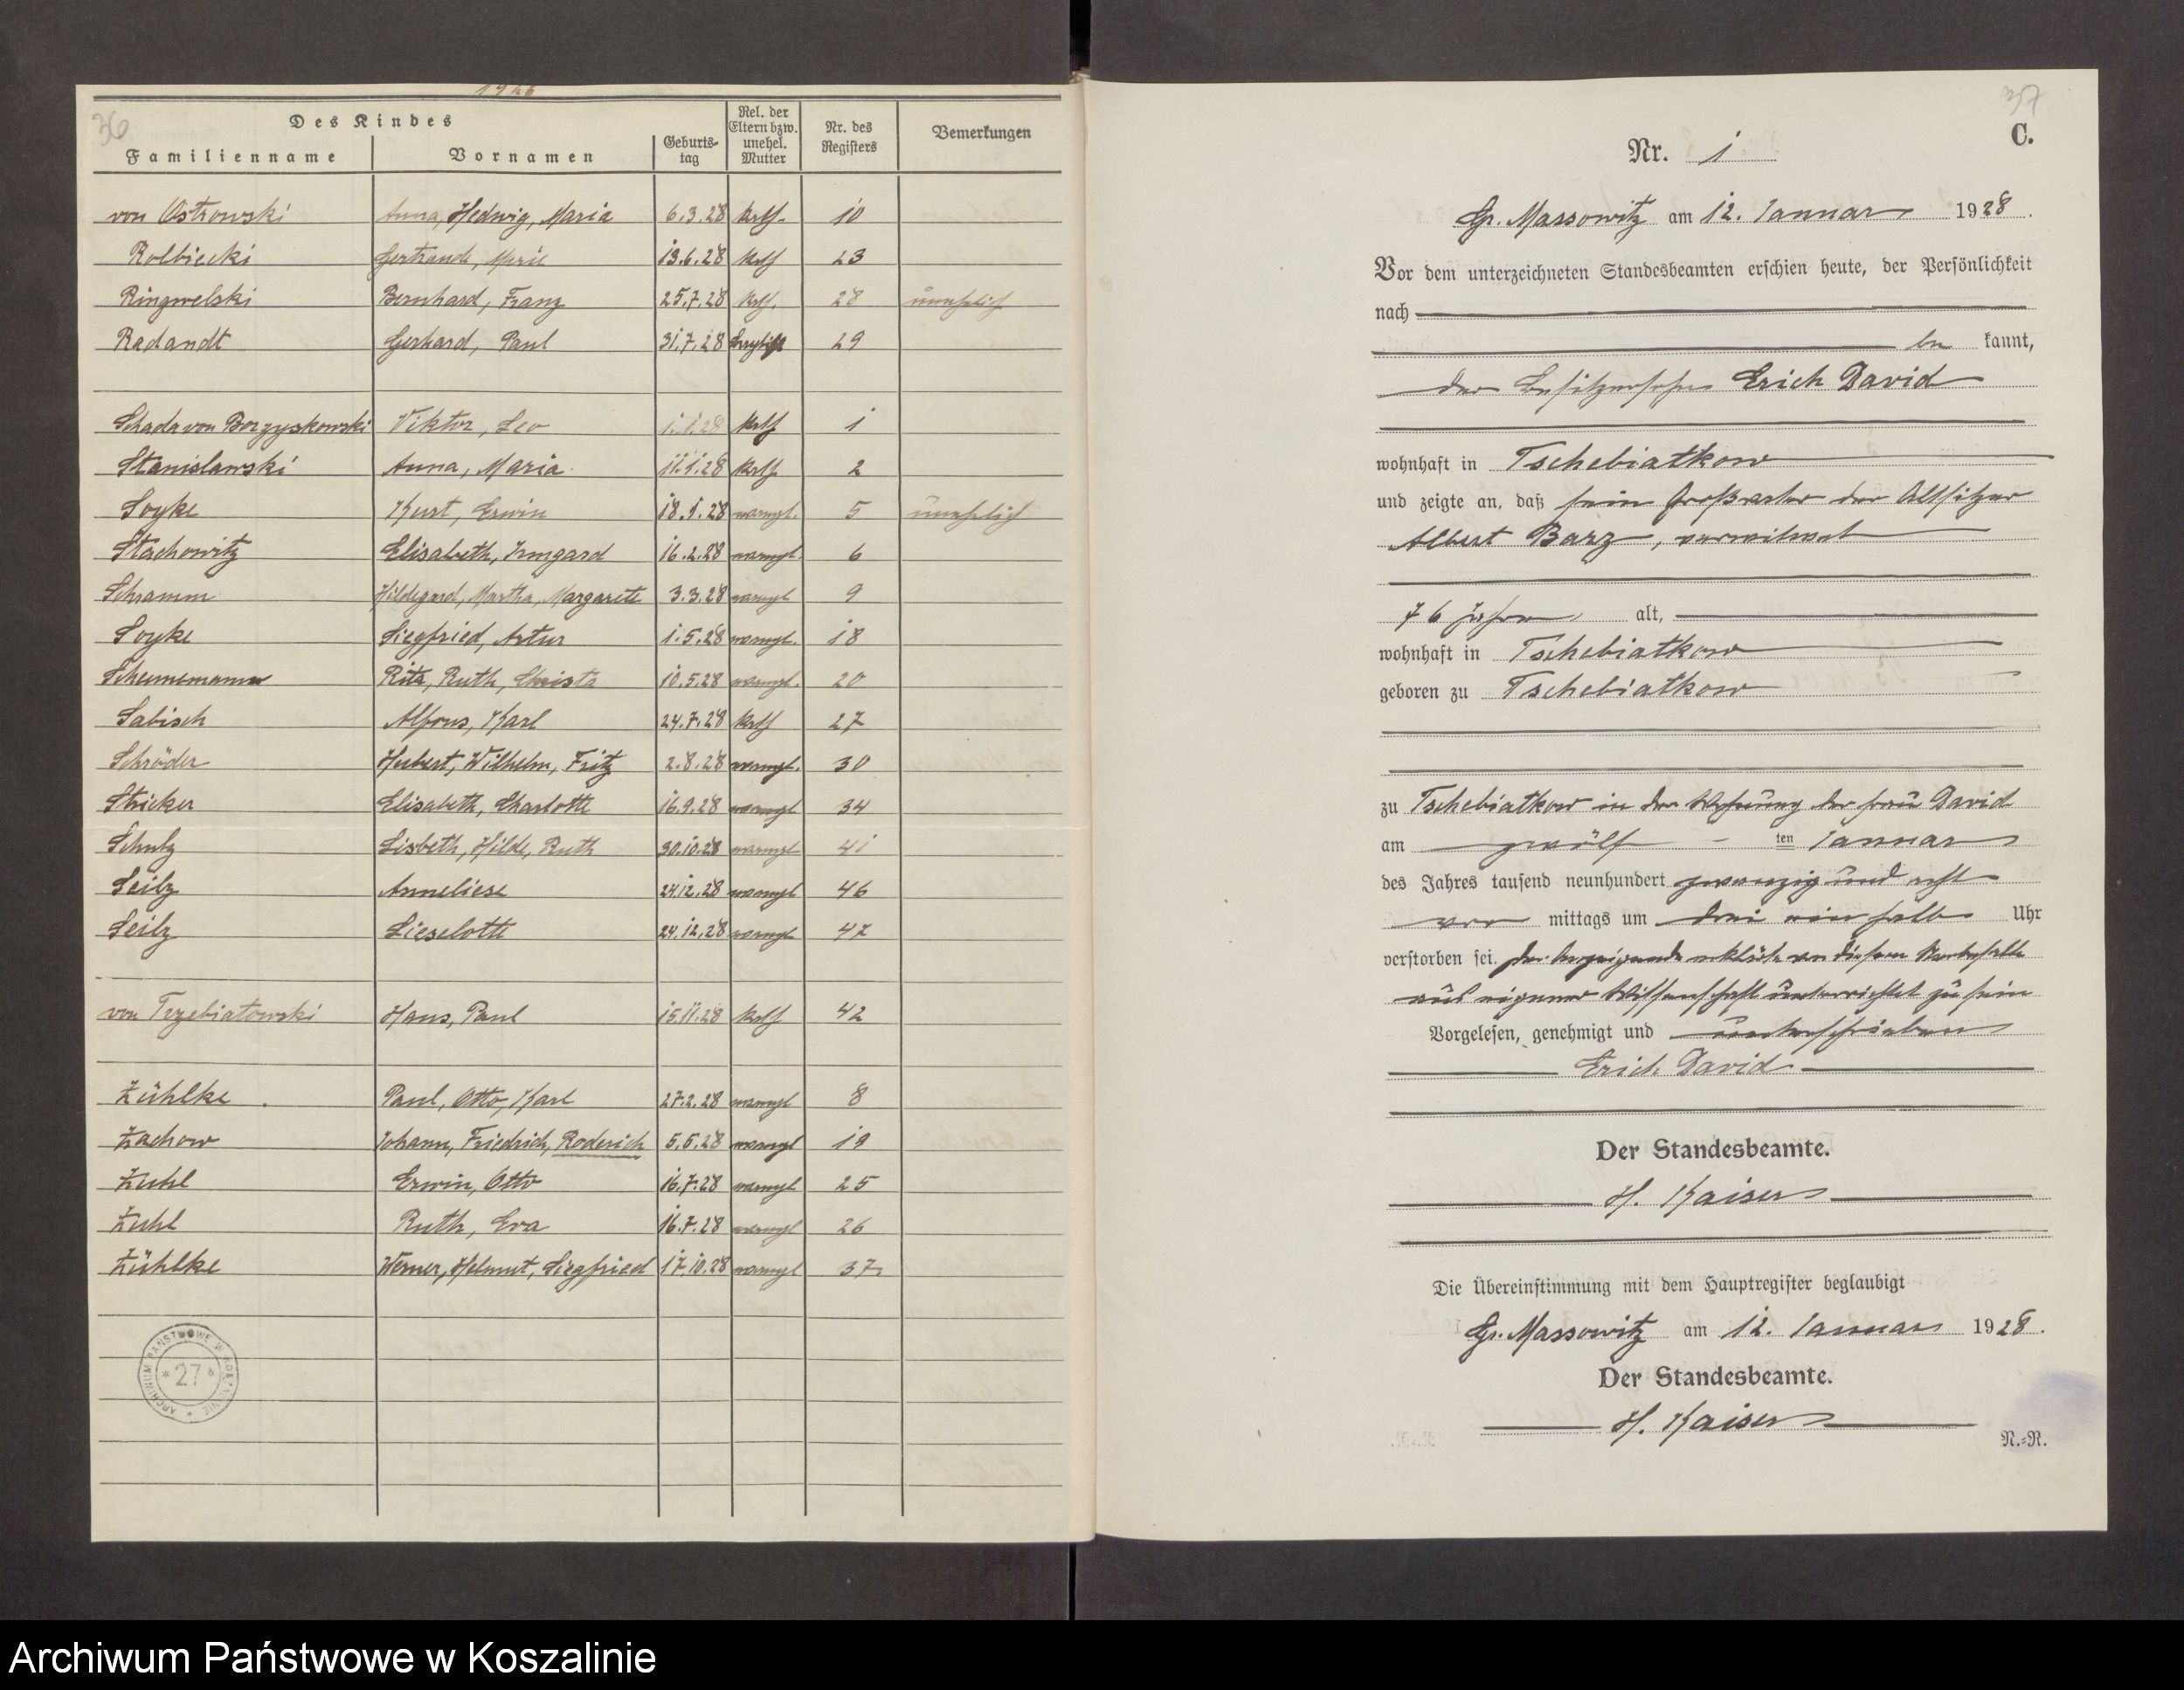 1928
36
Des Kindes
Familienname Vornamen Geburts-tag Rel. der Eltern bzw. unehel. Mutter Nr. des Registers Bemerkungen
von Ostrowski Anna, Hedwig, Maria 6.3.28 kath. 10
Rolbiecki Gertraude, Marie 13.6.28 kath 23
Ringwelski Bernhard, Franz 25.7.28 kath. 28 unehelich
Radandt Gerhard, Paul 31.7.28 29
Schada von Borzyskowski Viktor, Leo 1.1.28 kath 1
Stanislawski Anna, Maria 11.1.28 kath 2
Soyke Kurt, Erwin 18.1.28 evangl. 5 unehelich
Stachowitz Elisabeth, Irmgard 16.2.28 evangl. 6
Schramm Hildegard, Martha, Margarete 3.3.28 evangl 9
Soyke Siegfried, Artur 1.5.28 evangl. 18
Scheunemann Rita, Ruth, Christa 10.5.28 evangl. 20
Sabisch Alfons, Karl 24.7.28 kath 27
Schröder Hubert, Wilhelm, Fritz 2.8.28 evangl. 30
Stricker Elisabeth, Charlotte 16.9.28 evangl 34
Schulz Lisbeth, Hilde, Ruth 30.10.28 evangl 41
Seilz Anneliese 24.12.28 evangl 46
Seilz Lieselotte 24.12.28 evangl 47
von Trzebiatowski Hans, Paul 15.11.28 kath 42
Zühlke Paul, Otto, Karl 27.2.28 evangl 8
Zachow Johann, Friedrich, Roderich 5.5.28 evangl 19
Zuhl Erwin, Otto 16.7.28 evangl 25
Zuhl Ruth, Eva 16.7.28 evangl 26
Zühlke Werner, Helmut, Siegfried 17.10.28 evangl 37
ARCHIWUM PAŃSTWOWE W KOSZALINIE
* 27 *
37
C.
Nr. 1
Gr. Massowitz am 12. Januar 1928.
Vor dem unterzeichneten Standesbeamten erschien heute, der Persönlichkeit
nach
be kannt,
der Besitzersohn Erich David
wohnhaft in Tschebiatkow
und zeigte an, daß sein Großvater der Altsitzer
Albert Barz, verwitwet
76 Jahre alt,
wohnhaft in Tschebiatkow
geboren zu Tschebiatkow
zu Tschebiatkow in der Wohnung der Frau David
am zwölf ten Januar
des Jahres tausend neunhundert zwanzig und acht
vor mittags um drei ein halb Uhr
verstorben sei. Der Anzeigende erklärte von diesem Sterbefalle
aus eigener Wissenschaft unterrichtet zu sein
Vorgelesen, genehmigt und unterschrieben
Erich David
Der Standesbeamte.
H. Kaiser
Die Übereinstimmung mit dem Hauptregister beglaubigt
Gr. Massowitz am 12. Januar 1928.
Der Standesbeamte.
H. Kaiser
N.=R.
Archiwum Państwowe w Koszalinie